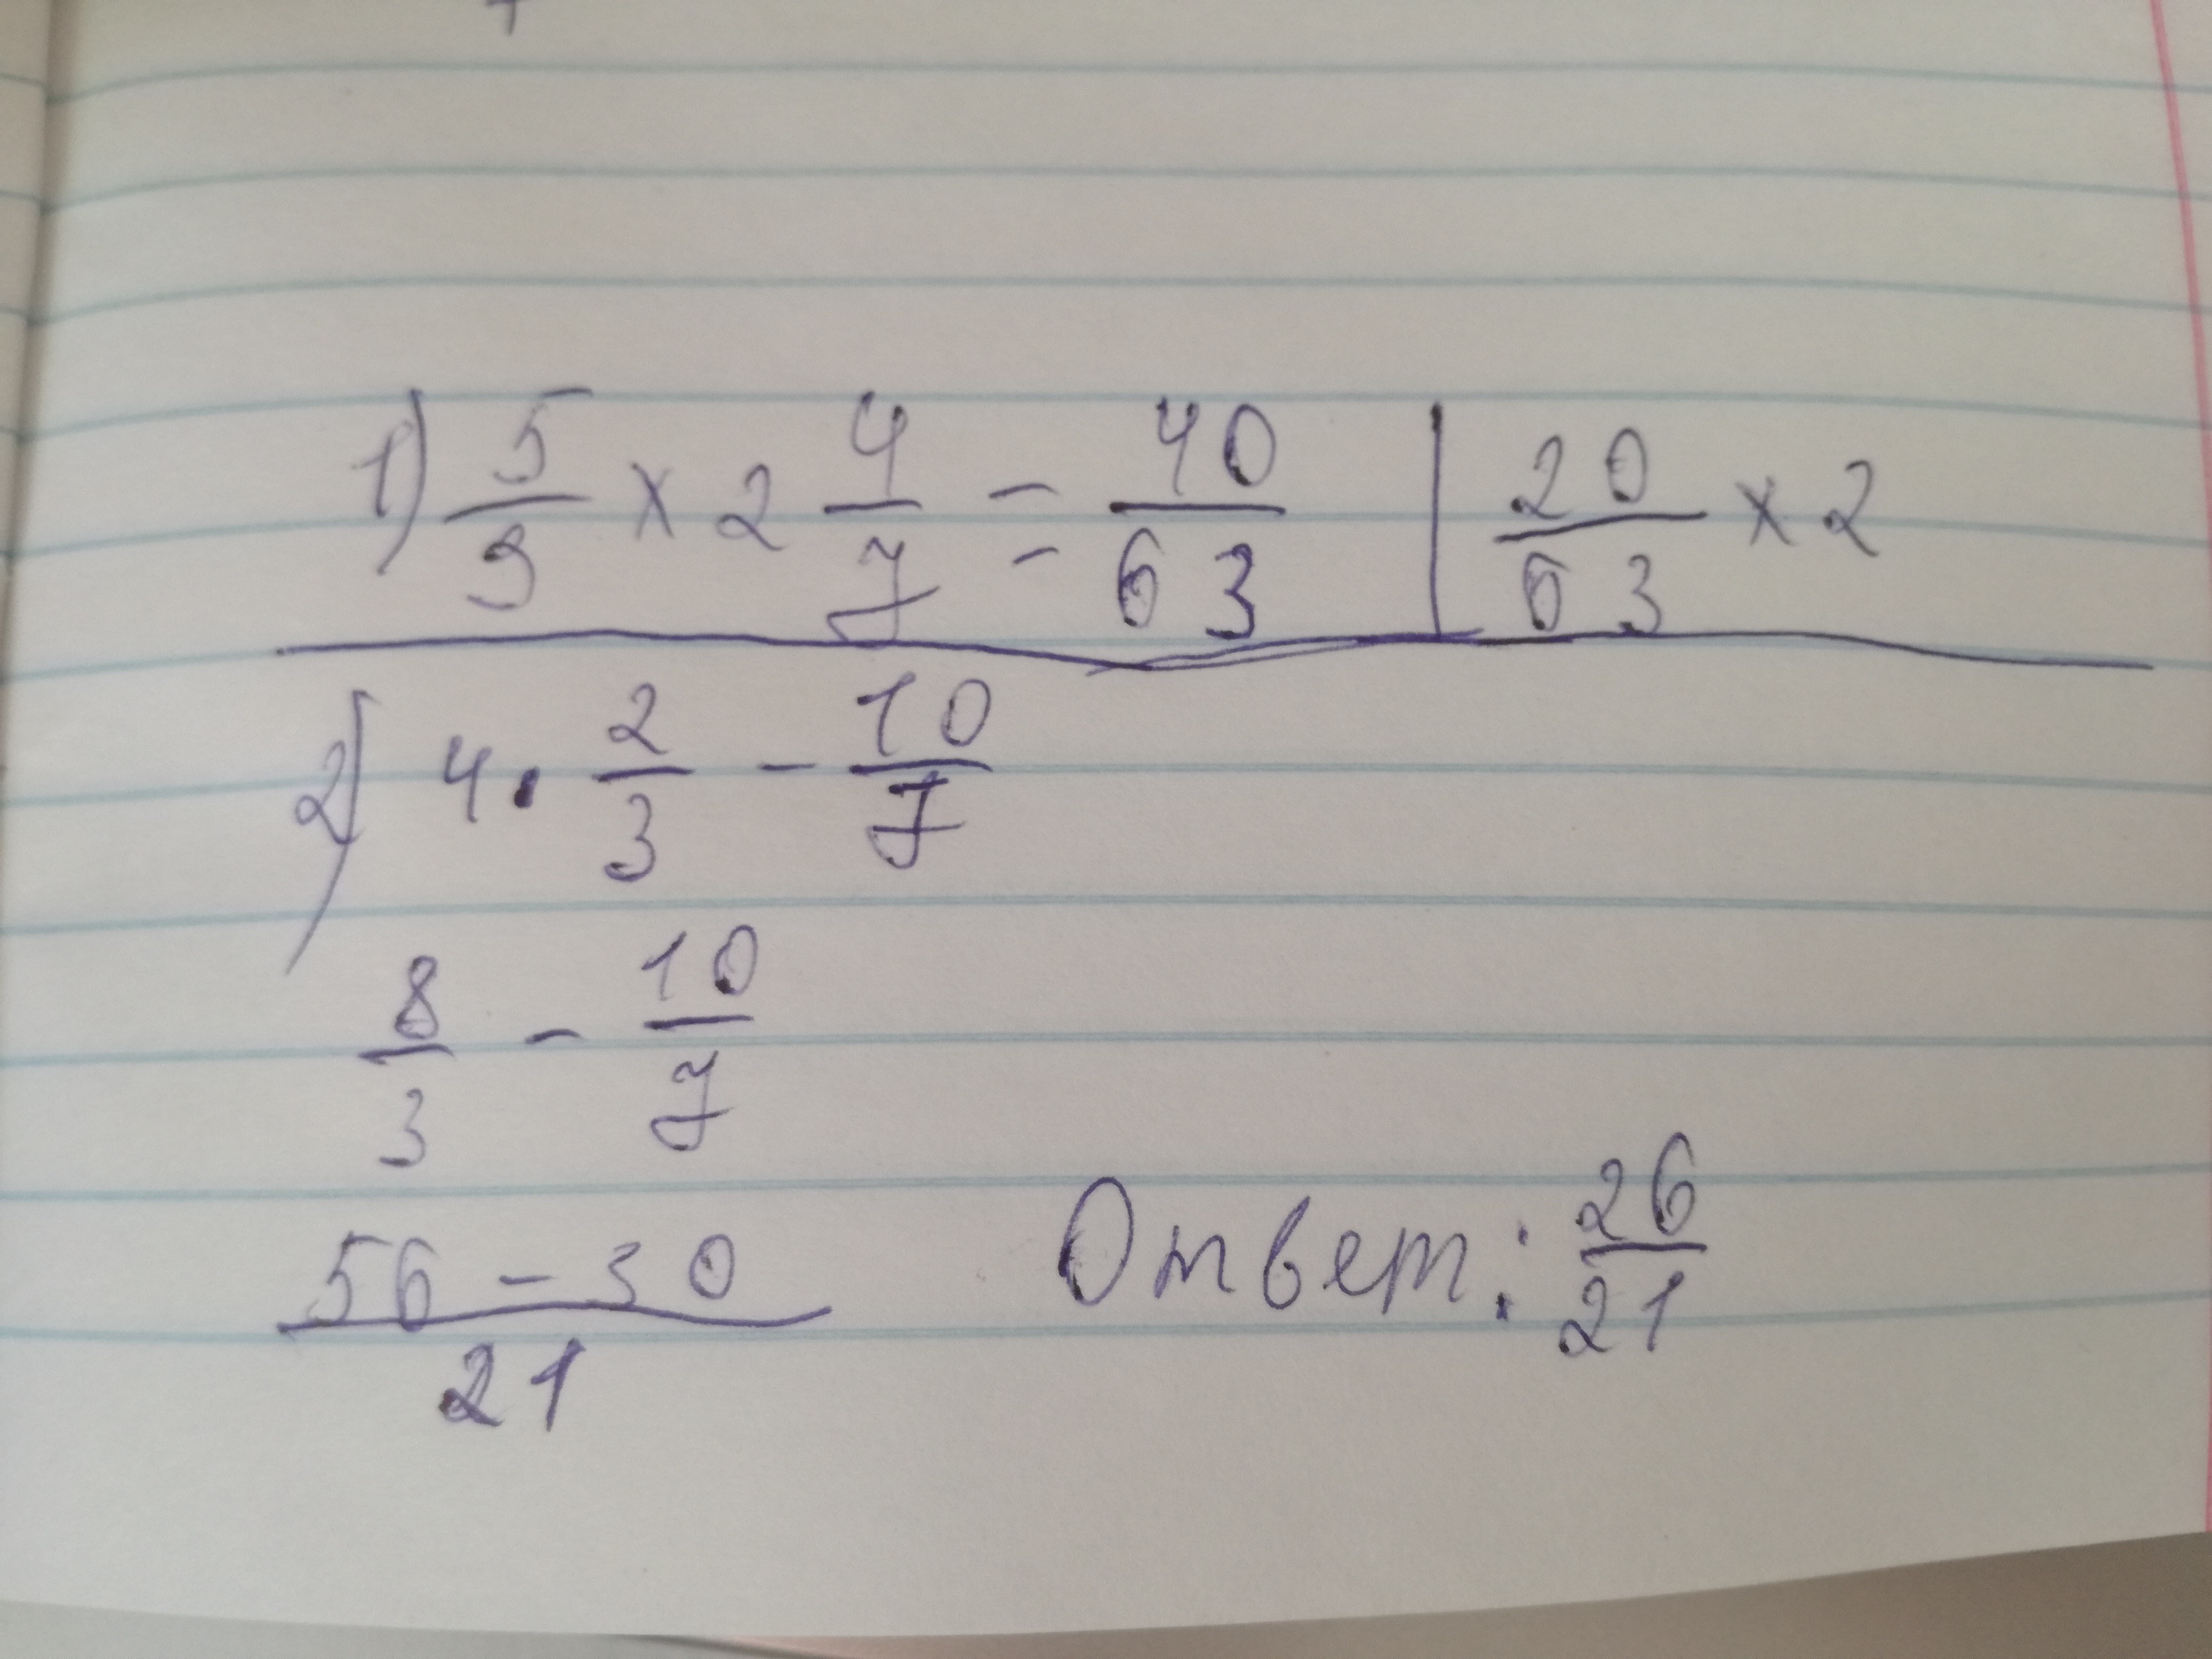 1) 5/9 × 2 4/7 = 40/63 | 20/63 × 2
2) 4 · 2/3 - 10/7
8/3 - 10/7
56 - 30 / 21
Ответ: 26/21